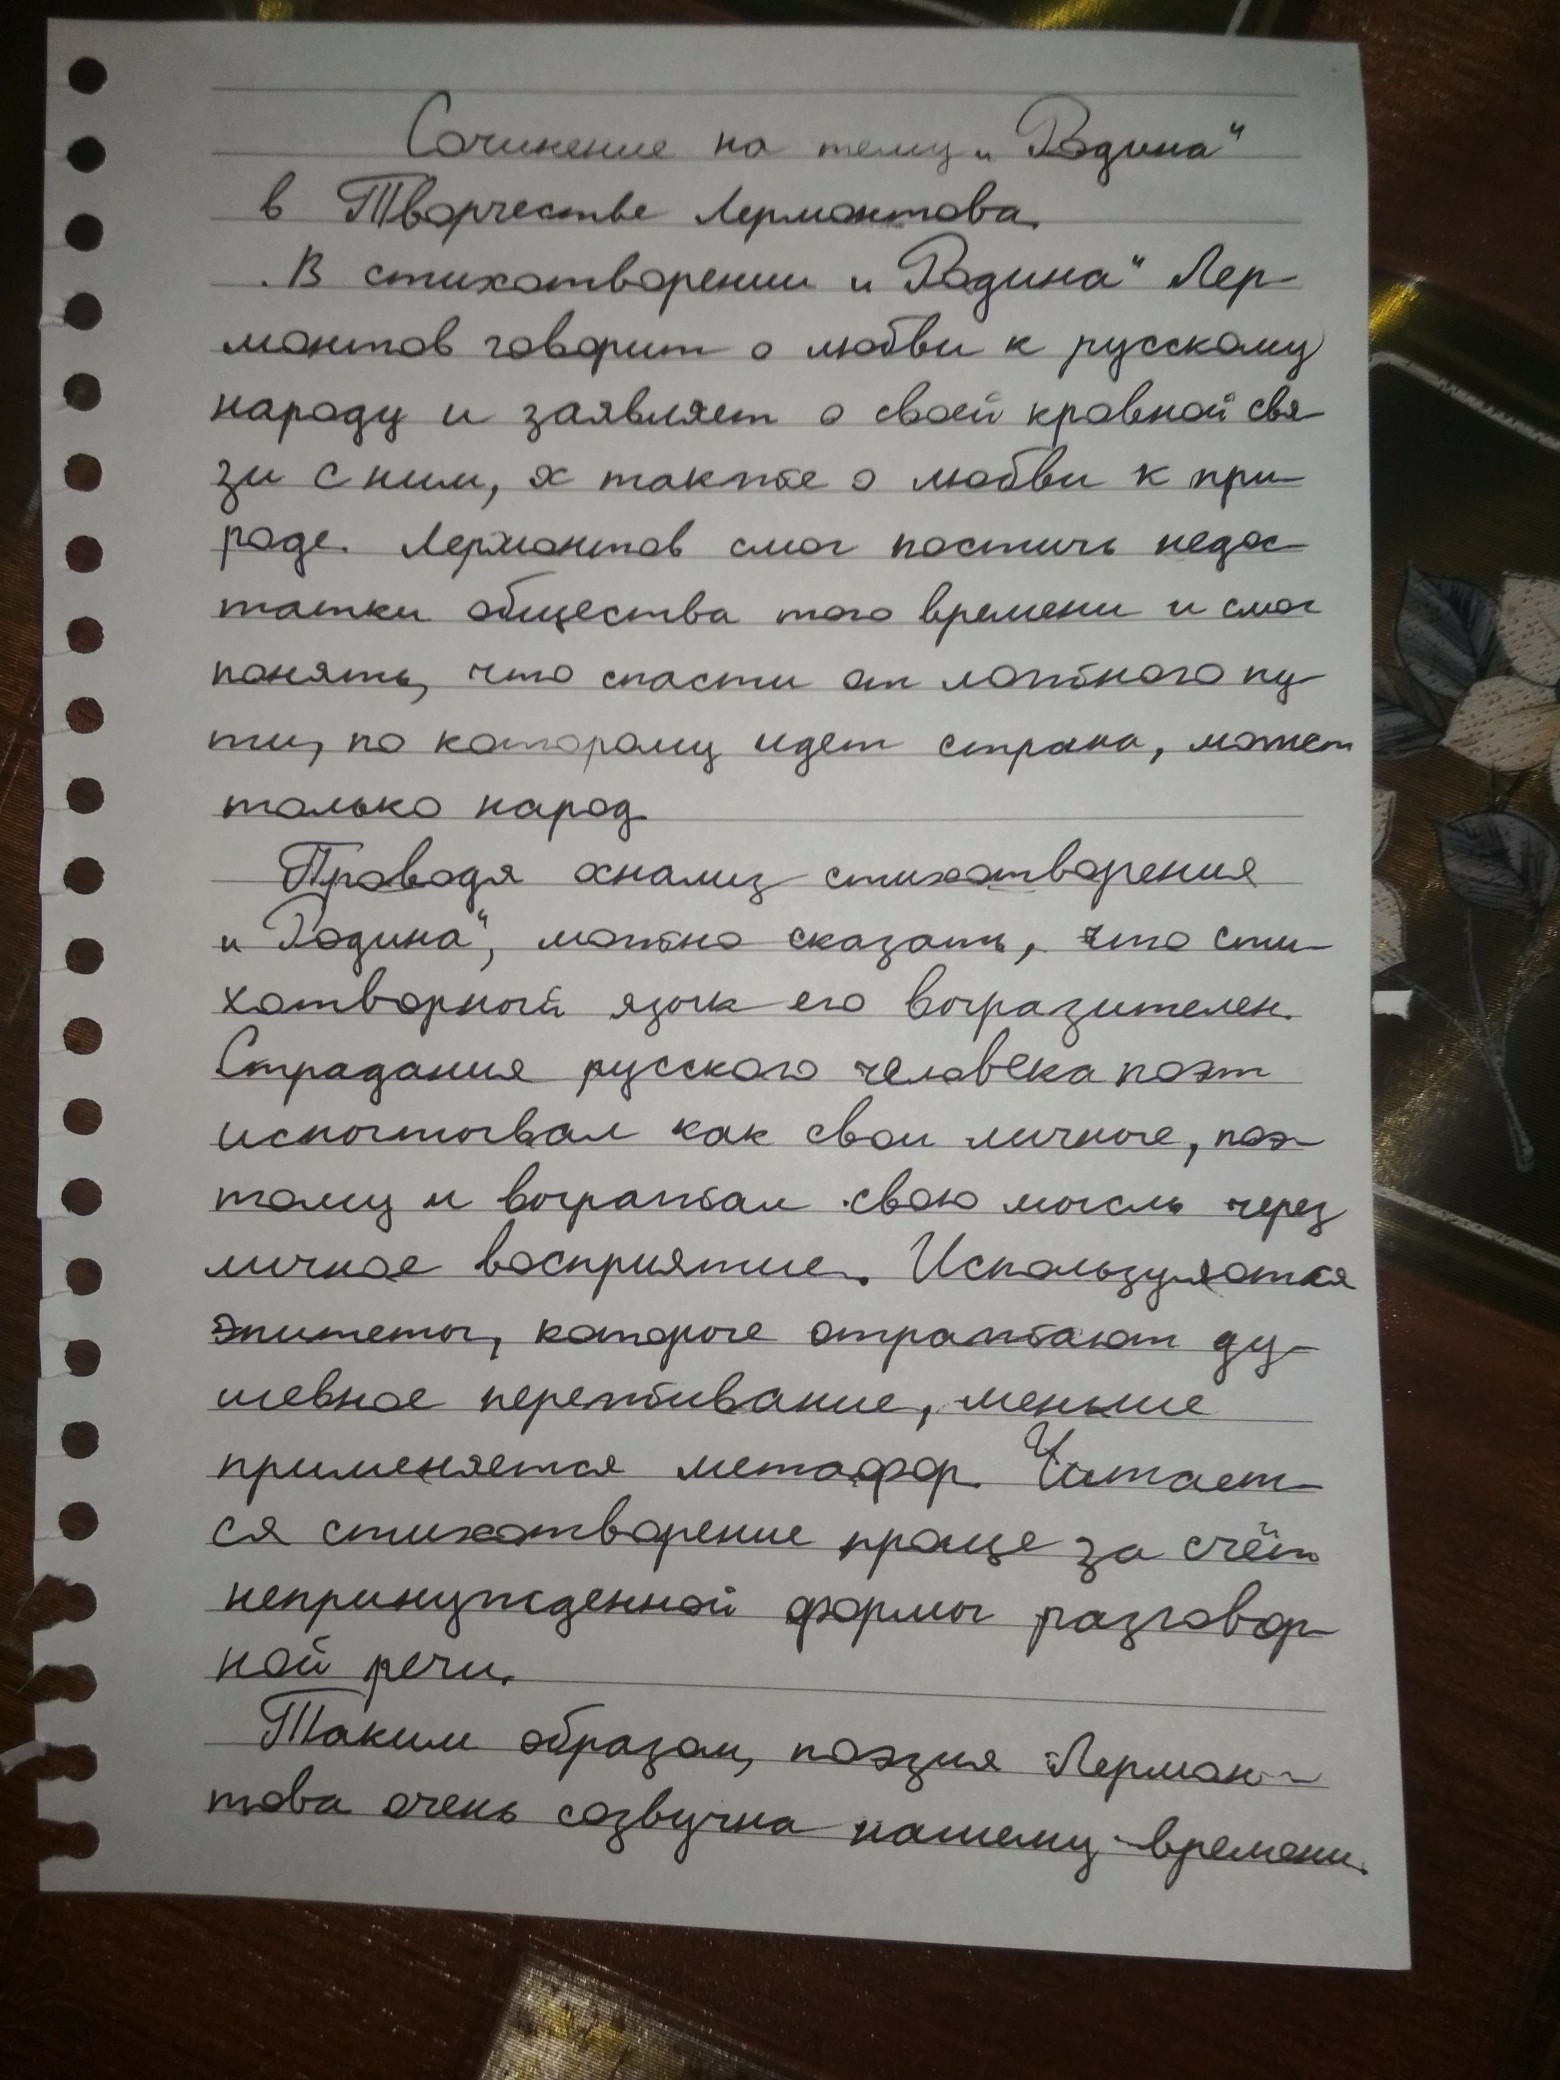 Сочинение на тему „Родина"
в Творчестве Лермонтова.
В стихотворении „Родина" Лер-
монтов говорит о любви к русскому
народу и заявляет о своей кровной свя-
зи с ним, а также о любви к при-
роде. Лермонтов смог постичь недос-
татки общества того времени и смог
понять, что спасти от ложного пу-
ти, по которому идет страна, может
только народ.
Проводя анализ стихотворения
„Родина", можно сказать, что сти-
хотворный язык его выразителен.
Страдания русского человека поэт
испытывал как свои личные, поэ-
тому и выражал свою мысль через
личное восприятие. Используются
эпитеты, которые отражают ду-
шевное переживание, меньше
применяется метафор. Читает-
ся стихотворение проще за счёт
непринужденной формы разговор-
ной речи.
Таким образом, поэзия Лермон-
това очень созвучна нашему времени.